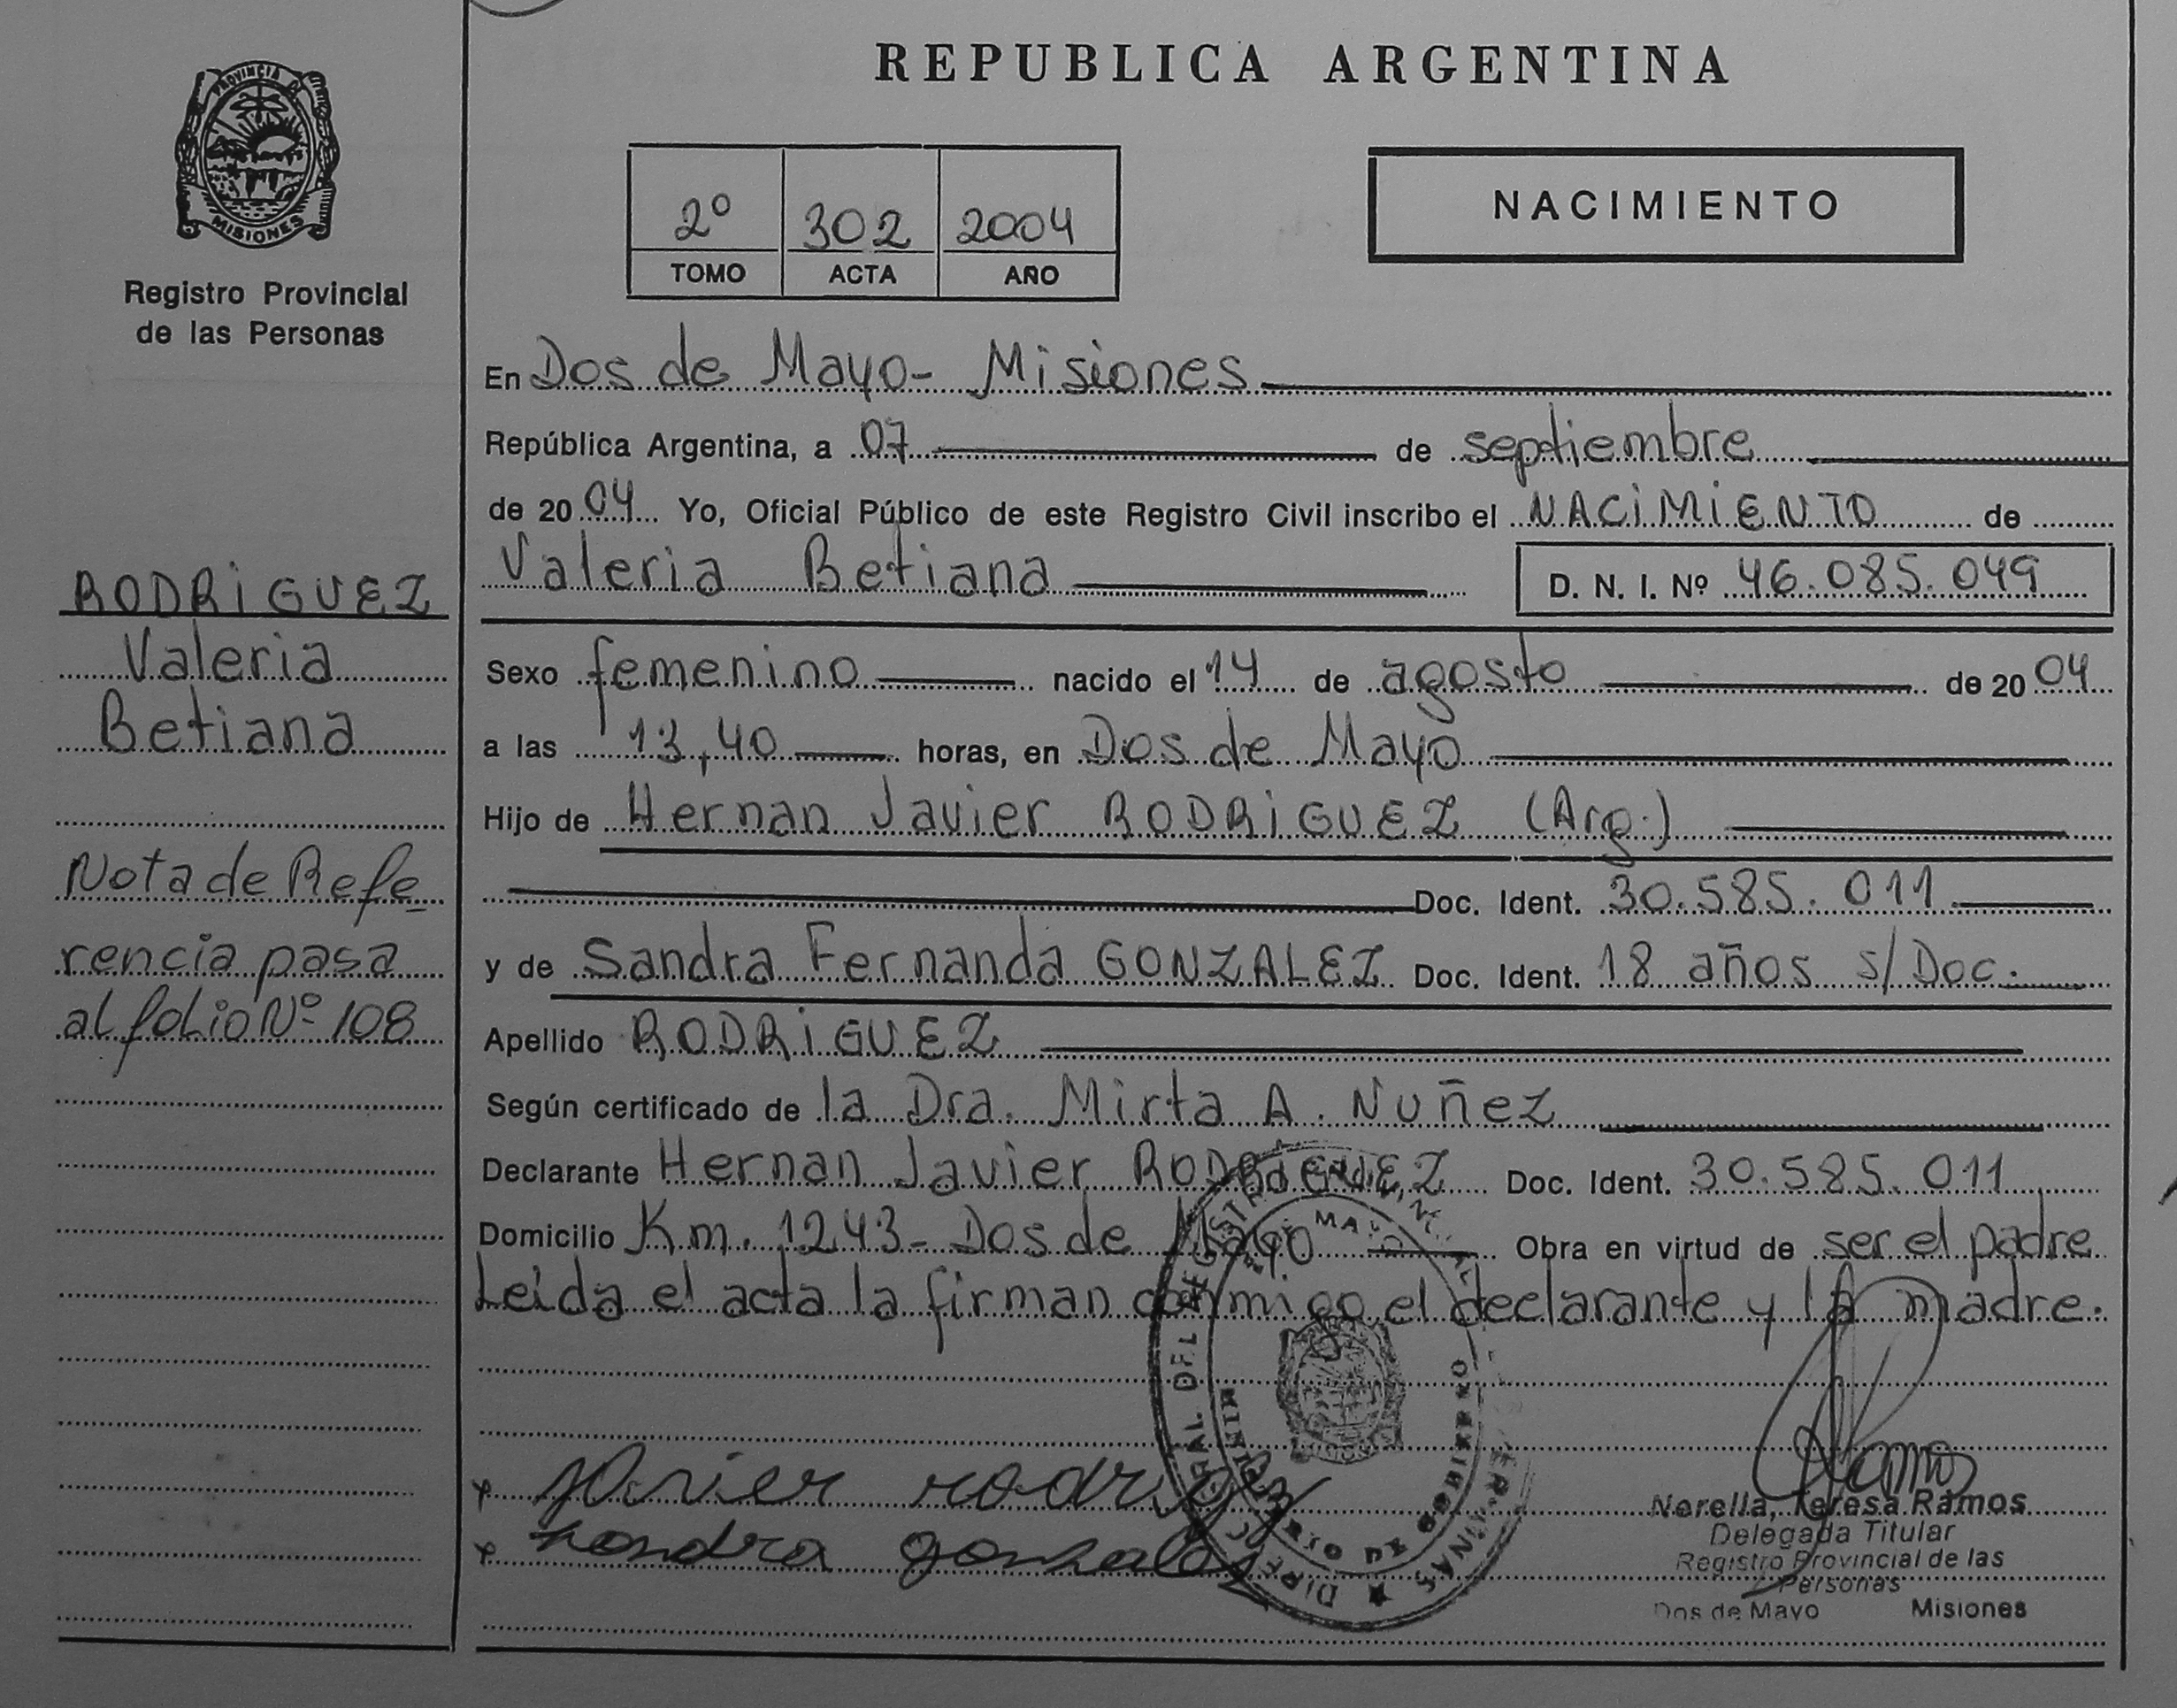 PROVINCIA DE
MISIONES
Registro Provincial
de las Personas
RODRiGUEZ
Valeria
Betiana
Nota de Refe_
rencia pasa
al folio Nº 108
REPUBLICA ARGENTINA
2º 302 2004
TOMO ACTA AÑO
NACIMIENTO
En Dos de Mayo- Misiones
República Argentina, a 07 de septiembre
de 2004 Yo, Oficial Público de este Registro Civil inscribo el NACiMiENTO de
Valeria Betiana D. N. I. Nº 46.085.049
Sexo femenino nacido el 14 de agosto de 2004
a las 13,40 horas, en Dos de Mayo
Hijo de Hernan Javier RODRiGUEZ (Arg.)
Doc. Ident. 30.585.011
y de Sandra Fernanda GONZALEZ Doc. Ident. 18 años s/Doc.
Apellido RODRiGUEZ
Según certificado de la Dra. Mirta A. Nuñez
Declarante Hernan Javier RODRiGUEZ Doc. Ident. 30.585.011
Domicilio Km. 1243- Dos de Mayo Obra en virtud de ser el padre
Leida el acta la firman conmigo el declarante y la madre.
Javier rodriguez
sandra gonzalez
Ramos
Norella, Teresa Ramos
Delegada Titular
Registro Provincial de las
Personas
Dos de Mayo Misiones